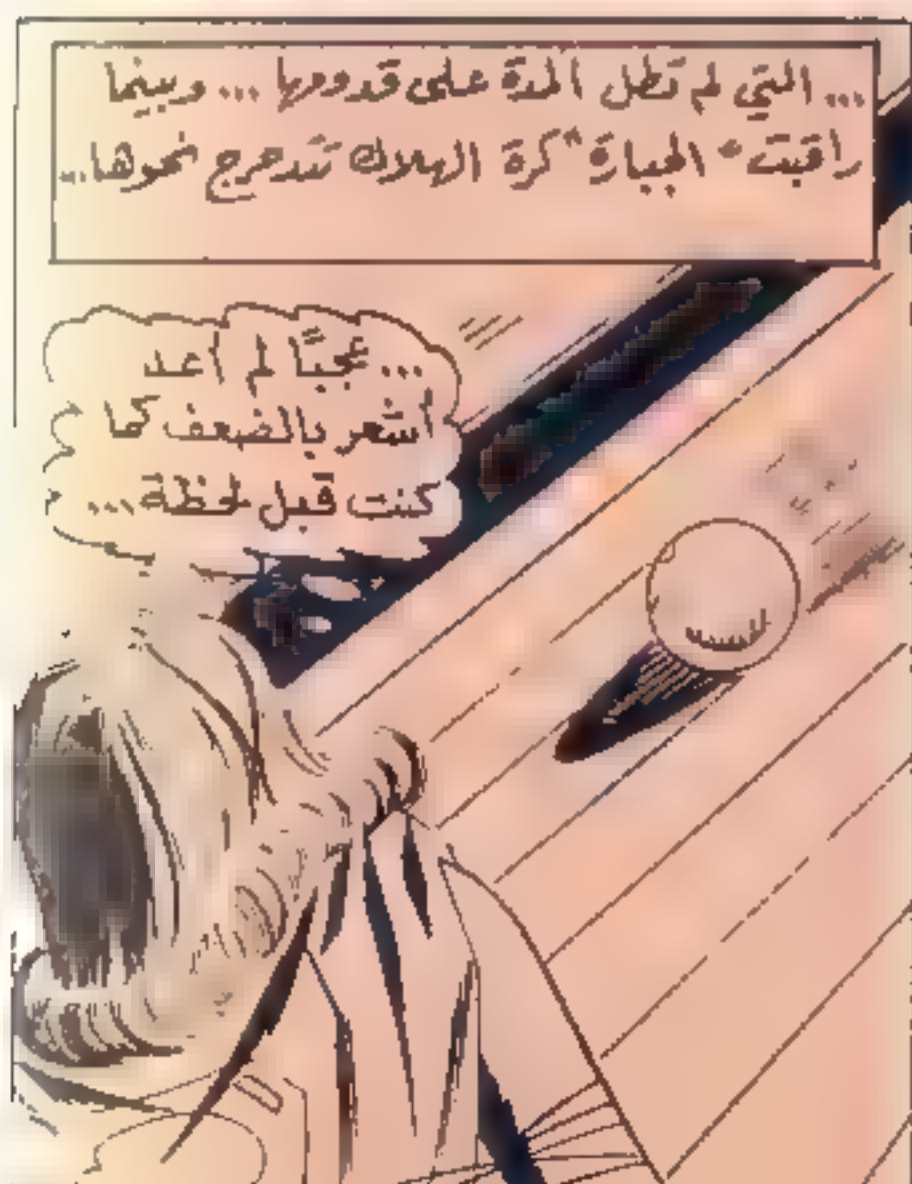 ... التي لم تطل المدة على قدومها ... وبينما
راقبت "الجبارة" كرة الهلاك تتدحرج نحوها..
... عجبًا لم أعد
أشعر بالضعف كما
كنت قبل لحظة ...